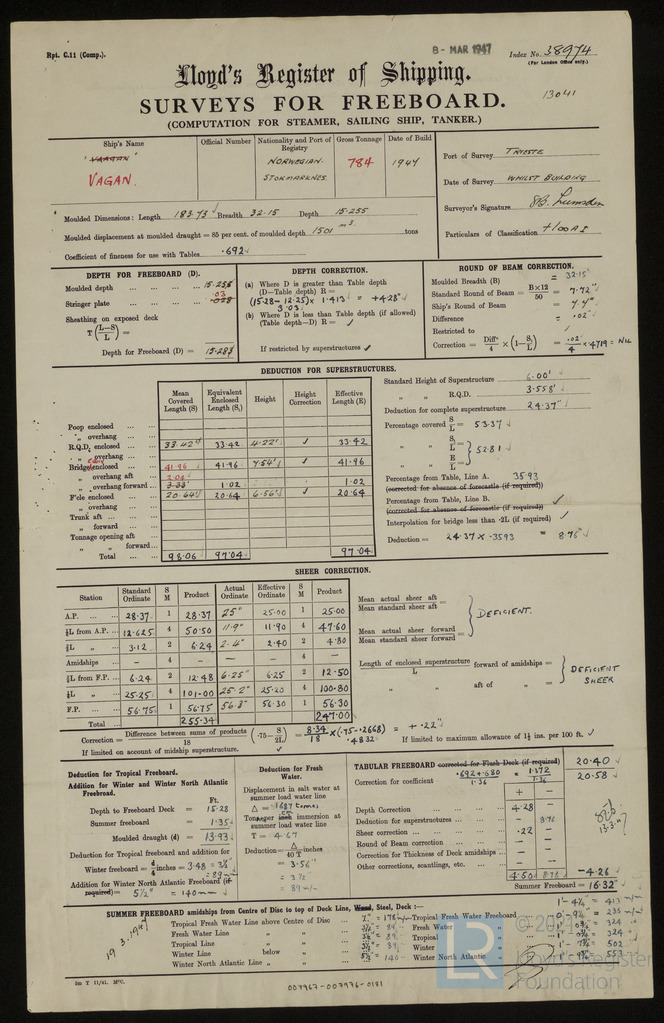 Rpt. C.11 (Comp.).
8- MAR 1947
Index No. 38974
(For London Office only.)
Lloyd's Register of Shipping.
13041
SURVEYS FOR FREEBOARD.
(COMPUTATION FOR STEAMER, SAILING SHIP, TANKER.)
Ship's Name
Official Number
Nationality and Port of Registry
Gross Tonnage
Date of Build
"VAAGAN"
VAGAN.
NORWEGIAN.
STOKMARKNES.
784
1947
Port of Survey TRIESTE
Date of Survey WHILST BUILDING
Surveyor's Signature
Particulars of Classification +100A1
Moulded Dimensions: Length 183.73 Breadth 32.15 Depth 15.255
Moulded displacement at moulded draught = 85 per cent. of moulded depth 1501 m3 tons
Coefficient of fineness for use with Tables .692
DEPTH FOR FREEBOARD (D).
Moulded depth 15.255
Stringer plate .03 .028
Sheathing on exposed deck
T(L-S/L) =
Depth for Freeboard (D) = 15.285
DEPTH CORRECTION.
(a) Where D is greater than Table depth
(D-Table depth) R =
(15.28 - 12.25) x 1.413 = +4.28"
3.03
(b) Where D is less than Table depth (if allowed)
(Table depth-D) R = ✓
If restricted by superstructures ✓
ROUND OF BEAM CORRECTION.
Moulded Breadth (B) = 32.15
Standard Round of Beam = B×12/50 = 7.72"
Ship's Round of Beam = 7.7"
Difference = .02"
Restricted to
Correction = Diff/4 × (1-S/L) = .02/4 × .4719 = NIL
DEDUCTION FOR SUPERSTRUCTURES.
Mean Covered Length (S)
Equivalent Enclosed Length (S₁)
Height
Height Correction
Effective Length (E)
Poop enclosed
„ overhang
R.Q.D. enclosed 33.42 33.42 4.22' ✓ 33.42
„ overhang
Bridge enclosed 41.96 41.96 7.54' ✓ 41.96
„ overhang aft
„ overhang forward 3.33 1.02 1.02
F'cle enclosed 20.64 20.64 6.56' ✓ 20.64
„ overhang
Trunk aft
„ forward
Tonnage opening aft
„ „ forward
Total 98.06 97.04 97.04
Standard Height of Superstructure 6.00'
„ „ R.Q.D. 3.558'
Deduction for complete superstructure 24.37"
Percentage covered S/L = 53.37
„ „ S₁/L = } 52.81
„ „ E/L =
Percentage from Table, Line A. 35.93
(corrected for absence of forecastle (if required))
Percentage from Table, Line B. ✓
(corrected for absence of forecastle (if required))
Interpolation for bridge less than .2L (if required) ✓
Deduction = 24.37 x .3593 = 8.76"
SHEER CORRECTION.
Station
Standard Ordinate
S M
Product
Actual Ordinate
Effective Ordinate
S M
Product
A.P. 28.37 1 28.37 25" 25.00 1 25.00
⅙L from A.P. 12.625 4 50.50 11.9" 11.90 4 47.60
⅓L „ 3.12 2 6.24 2.4" 2.40 2 4.80
Amidships - 4 - - 4 -
⅓L from F.P. 6.24 2 12.48 6.25" 6.25 2 12.50
⅙L „ 25.25 4 101.00 25.2" 25.20 4 100.80
F.P. 56.75 1 56.75 56.3" 56.30 1 56.30
Total 255.34 247.00
Mean actual sheer aft
Mean standard sheer aft =
Mean actual sheer forward
Mean standard sheer forward =
} DEFICIENT.
Length of enclosed superstructure forward of amidships =
L
„ „ aft of „ =
} DEFICIENT SHEER
Correction = Difference between sums of products/18 (.75-S/2L) = 8.34/18 x (.75-.2668) = +.22"
.4832
If limited on account of midship superstructure. ✓
If limited to maximum allowance of 1½ ins. per 100 ft. ✓
Deduction for Tropical Freeboard.
Addition for Winter and Winter North Atlantic Freeboard.
Ft.
Depth to Freeboard Deck = 15.28
Summer freeboard = 1.35
Moulded draught (d) = 13.93
Deduction for Tropical freeboard and addition for
Winter freeboard = d/4 inches = 3.48 = 3½"
= 89 m/m
Addition for Winter North Atlantic Freeboard (if required) = 5½" = 140 m/m
Deduction for Fresh Water.
Displacement in salt water at summer load water line
Δ = 1687 tonnes
Tonnes per cm immersion at summer load water line
T = 4.67
Deduction = Δ/40T inches
= 3.56"
= 3½
= 89 m/m
TABULAR FREEBOARD corrected for Flush Deck (if required) 20.40
Correction for coefficient .692+.680/1.36 = 1.372/1.36 20.58
+ -
Depth Correction 4.28
Deduction for superstructures 8.76
Sheer correction .22
Round of Beam correction
Correction for Thickness of Deck amidships
Other corrections, scantlings, etc.
4.50 8.76 -4.26
Summer Freeboard = 16.32"
SUMMER FREEBOARD amidships from Centre of Disc to top of Deck Line, Wood, Steel, Deck :—
1'-4¼" = 413 m/m
Tropical Fresh Water Line above Centre of Disc 7" = 178 m/m
Fresh Water Line „ „ 3½" = 89
Tropical Line „ „ 3½" = 89
Winter Line below „ 3½" = 89
Winter North Atlantic Line „ „ 5½" = 140
Tropical Fresh Water Freeboard 0'-9¼" = 235 m/m
Fresh Water „ 1'-0¾" = 324
Tropical „ 1'-0¾" = 324
Winter „ 1'-7¾" = 502
Winter North Atlantic „ 1'-9¾" = 553
19.3.1947
007967-007976-0181
LR
Lloyd's Register
Foundation